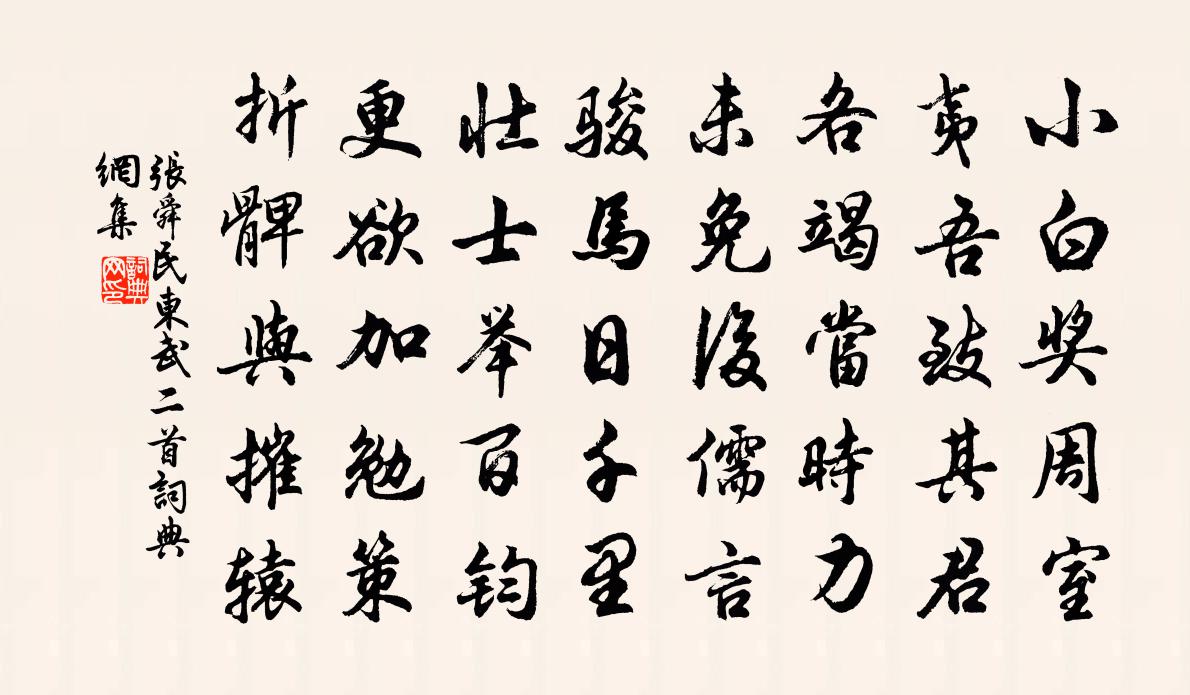 小白奖周室
夷吾致其君
各竭當時力
未免後儒言
骏馬日千里
壮士举百鈞
更欲加勉策
折髀與摧辕
張舜民東武二首詞典
網集
詞典
网印